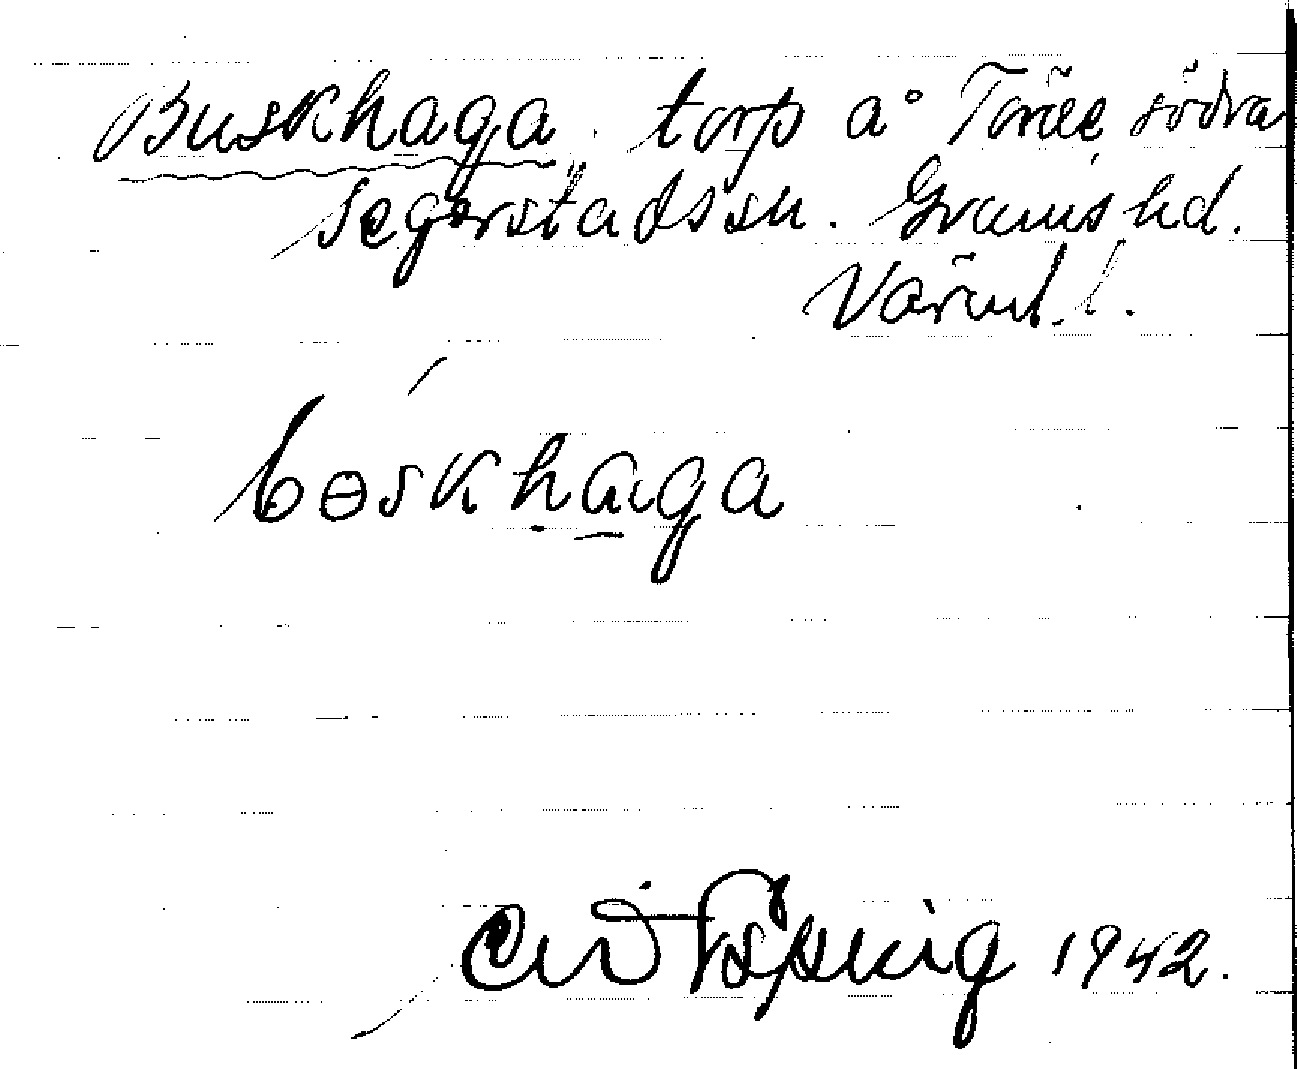 Buskhaga. torp å Torée södra
Segerstads sn. Grums hd.
Värml. l.
bɵskhaga
1942.